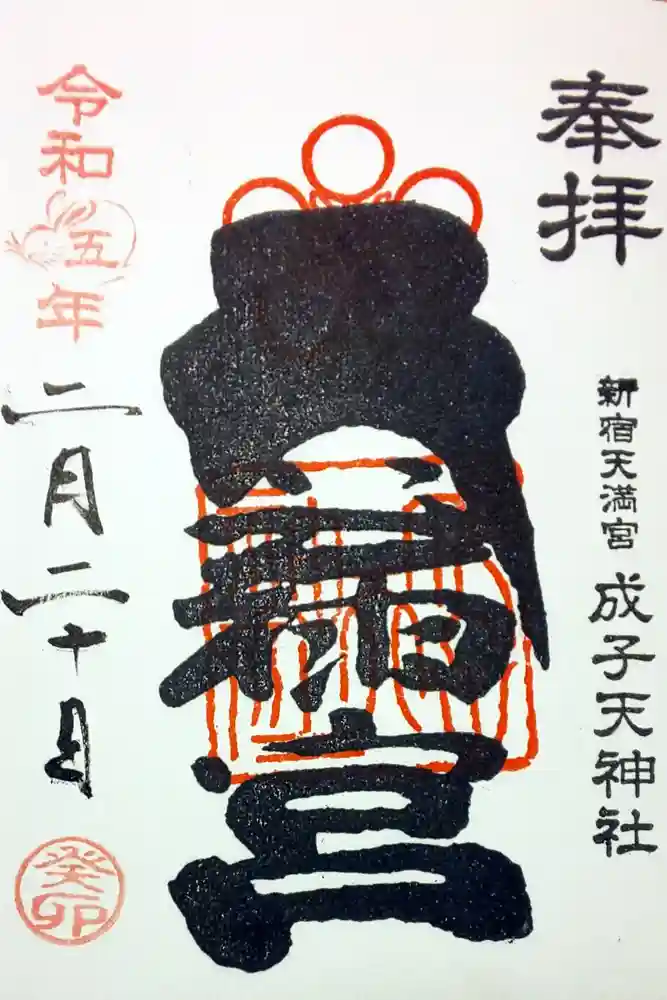 奉拝
新宿天満宮 成子天神社
新宿
宮
令和五年
二月二十日
癸卯